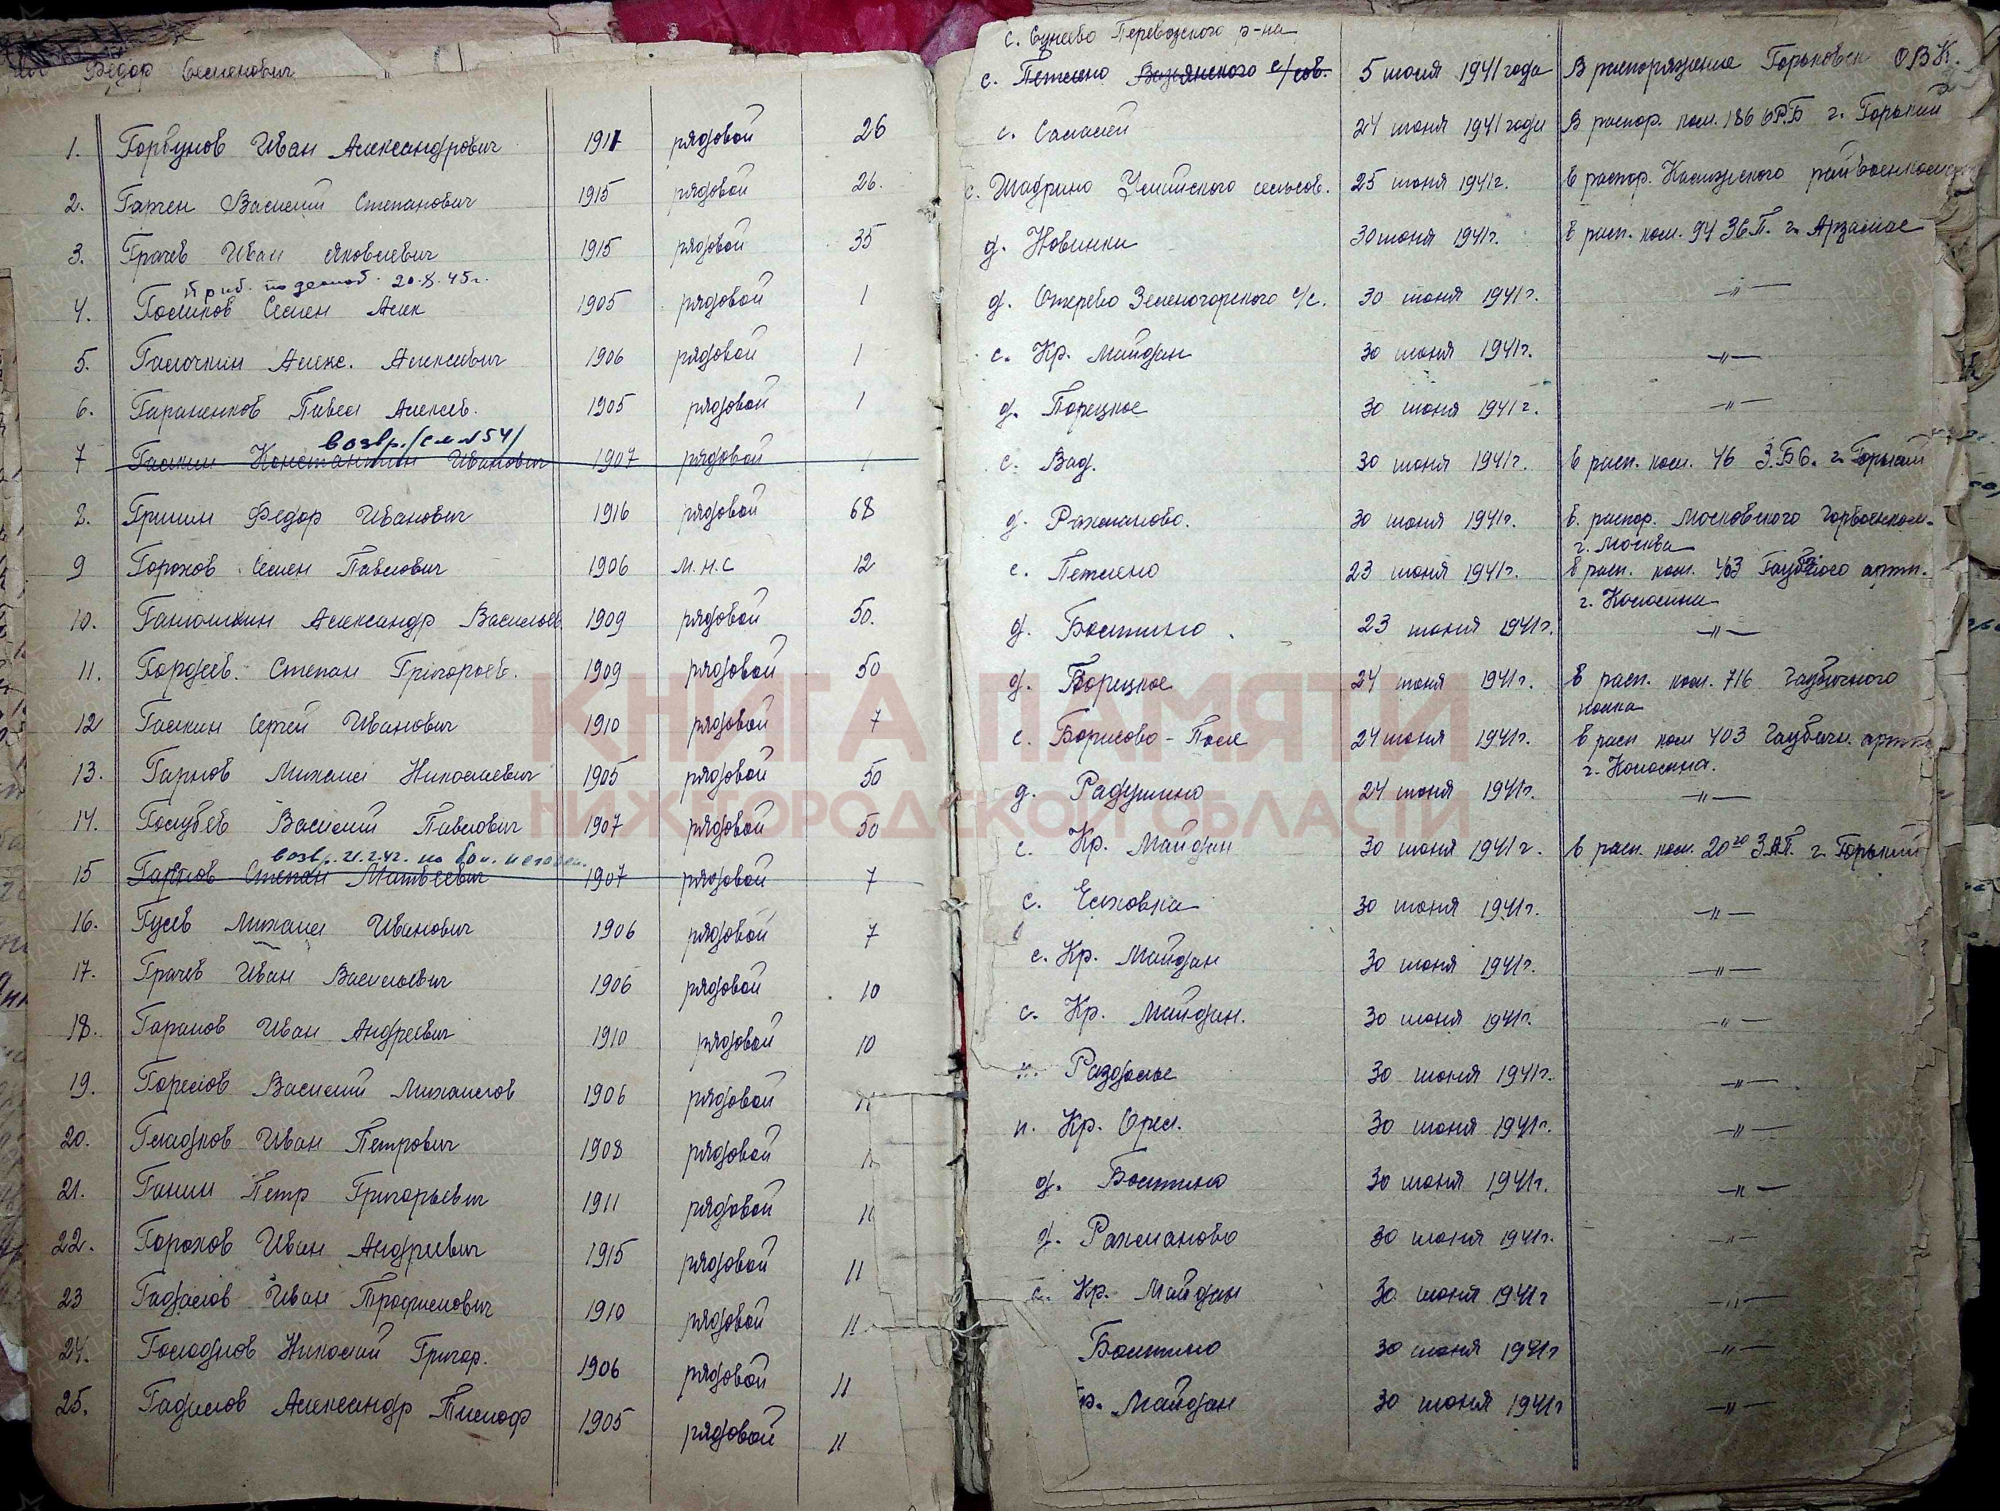 Федор Семенович
1. Горбунов Иван Александрович 1911 рядовой 26
2. Гаржен Василий Степанович 1915 рядовой 26.
3. Грачев Иван Яковлевич 1915 рядовой 35
Приб. по демоб. 20.X.45г.
4. Голиков Семен Алек 1905 рядовой 1
5. Галочкин Алекс. Алексеевич 1906 рядовой 1
6. Гараненков Павел Алексев. 1905 рядовой 1
возвр. /см N54/
7 Гаскин Константин Иванович 1907 рядовой 1
8. Гришин Федор Иванович 1916 рядовой 68
9 Горохов Семен Павлович 1906 м.н.с 12
10. Ганюшкин Александр Васильев 1909 рядовой 50.
11. Гордеев. Степан Григорьев. 1909 рядовой 50
12 Гаскин Сергей Иванович 1910 рядовой 7
13. Гарнов Михаил Николаевич 1905 рядовой 50
14. Голубев Василий Павлович 1907 рядовой 50
15 Степан Матвеевич 1907 рядовой 7
16. Гусев Михаил Иванович 1906 рядовой 7
17. Грачев Иван Васильевич 1906 рядовой 10
18. Гаранов Иван Андреевич 1910 рядовой 10
19. Горелов Василий Михайлов 1906 рядовой 11
20. Гладков Иван Петрович 1908 рядовой 11
21. Ганин Петр Григорьевич 1911 рядовой 11
22. Горохов Иван Андреевич 1915 рядовой 11
23 Гадалов Иван Трофимович 1910 рядовой 11
24. Голоднов Николай Григор. 1906 рядовой 11
25. Гадалов Александр Тимоф 1905 рядовой 11
с. Перевозского р-на
с. Петлено с/сов. 5 июля 1941 года В распоряжение Горьковск ОВК.
с. Салалей 24 июня 1941 года В распор. ком. 186 г. Горький
с. Шадрино сельсов. 25 июня 1941г. В распор. райвоенкомата
д. Новинки 30 июня 1941г. в расп. ком. 94 ЗСП. г. Арзамас
д. Отрево Зеленогорского с/с. 30 июня 1941г. -"-
с. Кр. Майдан 30 июня 1941г. -"-
д. Порецкое 30 июня 1941г. -"-
с. Вад. 30 июня 1941г. в расп. ком. 46 г. Горький
д. Рахманово. 30 июня 1941г. в. распор. Московского Горвоенком.
г. Москва
с. Петлено 23 июня 1941г. в расп. ком. 403 Гаубчого артп.
г. Коломна
д. Болтино. 23 июня 1941г. -"-
д. Борецкое 24 июня 1941г. в расп. ком. 716 Гаубичного
полка
с. Борисово-Поле 24 июня 1941г. в расп ком 403 Гаубичн. артп
г. Коломна.
д. Радушино 24 июня 1941г. -"-
с. Кр. Майдан 30 июня 1941г. в расп. ком. 20го З.А.П. г Горький
с. Елховка 30 июня 1941г. -"-
с. Кр. Майдан 30 июня 1941г. -"-
с. Кр. Майдан. 30 июня 1941г. -"-
п. Раздолье 30 июня 1941г. -"-
п. Кр. Орел. 30 июня 1941г. -"-
д. Болтино 30 июня 1941г. -"-
д. Рахманово 30 июня 1941г. -"-
с. Кр. Майдан 30 июня 1941г -"-
Болтино 30 июня 1941г -"-
р. Майдан 30 июня 1941г -"-
КНИГА ПАМЯТИ
НИЖЕГОРОДСКОЙ ОБЛАСТИ